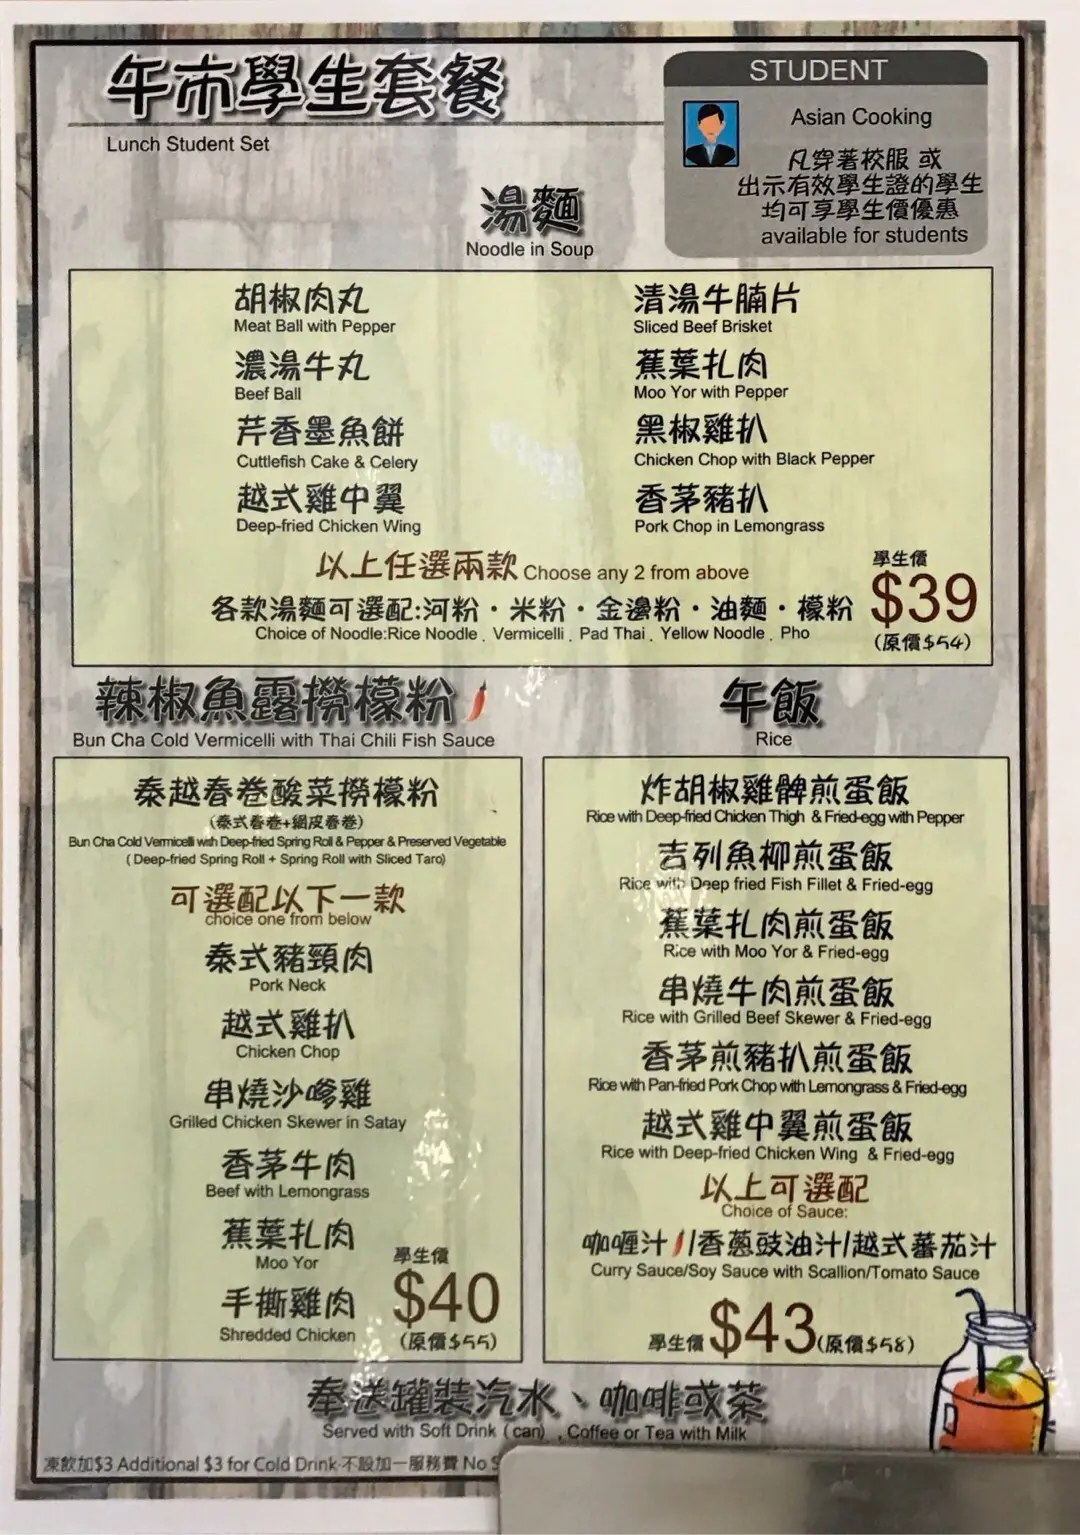 午市學生套餐
Lunch Student Set
STUDENT
Asian Cooking
凡穿著校服 或
出示有效學生證的學生
均可享學生價優惠
available for students
湯麵
Noodle in Soup
胡椒肉丸
Meat Ball with Pepper
濃湯牛丸
Beef Ball
芹香墨魚餅
Cuttlefish Cake & Celery
越式雞中翼
Deep-fried Chicken Wing
清湯牛腩片
Sliced Beef Brisket
蕉葉扎肉
Moo Yor with Pepper
黑椒雞扒
Chicken Chop with Black Pepper
香茅豬扒
Pork Chop in Lemongrass
以上任選兩款 Choose any 2 from above
各款湯麵可選配:河粉・米粉・金邊粉・油麵・檬粉
Choice of Noodle:Rice Noodle . Vermicelli . Pad Thai . Yellow Noodle . Pho
學生價
$39
(原價$54)
辣椒魚露撈檬粉
Bun Cha Cold Vermicelli with Thai Chili Fish Sauce
泰越春卷酸菜撈檬粉
(泰式春卷+網皮春卷)
Bun Cha Cold Vermicelli with Deep-fried Spring Roll & Pepper & Preserved Vegetable
( Deep-fried Spring Roll + Spring Roll with Sliced Taro)
可選配以下一款
choice one from below
泰式豬頸肉
Pork Neck
越式雞扒
Chicken Chop
串燒沙嗲雞
Grilled Chicken Skewer in Satay
香茅牛肉
Beef with Lemongrass
蕉葉扎肉
Moo Yor
手撕雞肉
Shredded Chicken
學生價
$40
(原價$55)
午飯
Rice
炸胡椒雞髀煎蛋飯
Rice with Deep-fried Chicken Thigh & Fried-egg with Pepper
吉列魚柳煎蛋飯
Rice with Deep fried Fish Fillet & Fried-egg
蕉葉扎肉煎蛋飯
Rice with Moo Yor & Fried-egg
串燒牛肉煎蛋飯
Rice with Grilled Beef Skewer & Fried-egg
香茅煎豬扒煎蛋飯
Rice with Pan-fried Pork Chop with Lemongrass & Fried-egg
越式雞中翼煎蛋飯
Rice with Deep-fried Chicken Wing & Fried-egg
以上可選配
Choice of Sauce:
咖喱汁/香蔥豉油汁/越式蕃茄汁
Curry Sauce/Soy Sauce with Scallion/Tomato Sauce
學生價 $43 (原價$58)
奉送罐裝汽水、咖啡或茶
Served with Soft Drink ( can) , Coffee or Tea with Milk
凍飲加$3 Additional $3 for Cold Drink 不設加一服務費 No